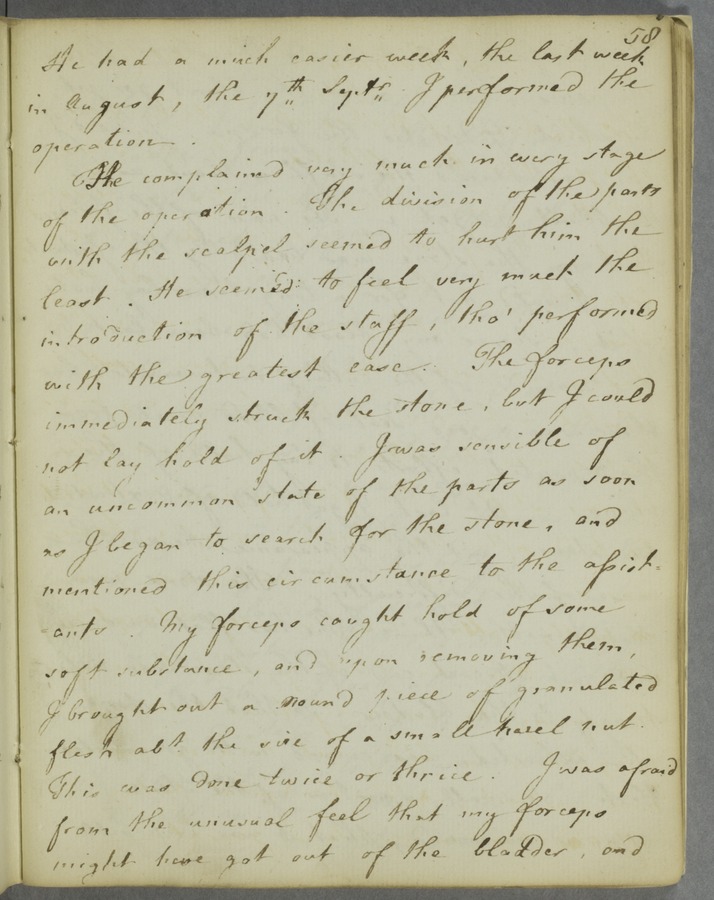 58
He had a much easier week, the last week
in August, the 7th Septr. I performed the
operation.
He complained very much in every stage
of the operation. The division of the parts
with the scalpel seemed to hurt him the
least. He seemed to feel very much the
introduction of the staff, tho' performed
with the greatest ease. The forceps
immediately struck the stone, but I could
not lay hold of it. I was sensible of
an uncommon state of the parts as soon
as I began to search for the stone, and
mentioned this circumstance to the assist=
=ants. My forceps caught hold of some
soft substance, and upon removing them,
I brought out a round piece of granulated
flesh abt. the size of a small hazel nut.
This was done twice or thrice. I was afraid
from the unusual feel that my forceps
might have got out of the bladder, and